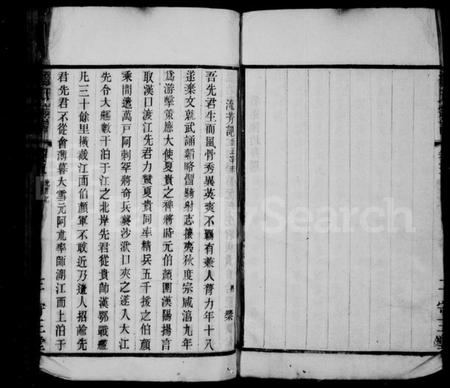 流芳記
吾先君生而風骨秀異英爽不羈有兼人膂力年十八
遂棄文就武誦韜略習騎射志攘夷狄度宗咸淳九年
為游擊策應大使夏貴之裨將時元伯顏圍漢陽揚言
取漢口渡江先君力贊夏貴同率精兵五千援之伯顏
乘間遣萬戶阿剌罕將奇兵襲沙洑口夾之遂入大江
先令大艦數千泊于江之北岸先君從貴師漢鄂戰艦
凡三十餘里橫截江面伯顏軍不敢近乃遣人招諭先
君先君不從會薄暮大雪元阿朮率師溯江而上泊于
Search